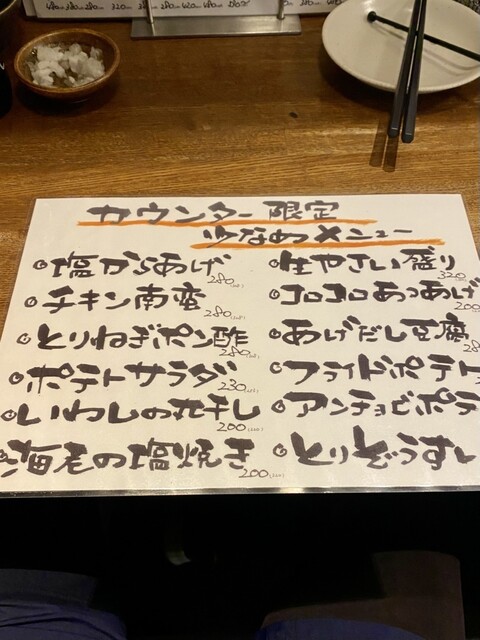 カウンター限定
少なめメニュー
塩からあげ 280
チキン南蛮 280
とりねぎポン酢 280
ポテトサラダ 230
いわしの丸干し 200
海老の塩焼き 200
生やさい盛り 320
コロコロあつあげ 200
あげだし豆腐 28
フライドポテト
アンチョビポテ
とりぞうすい